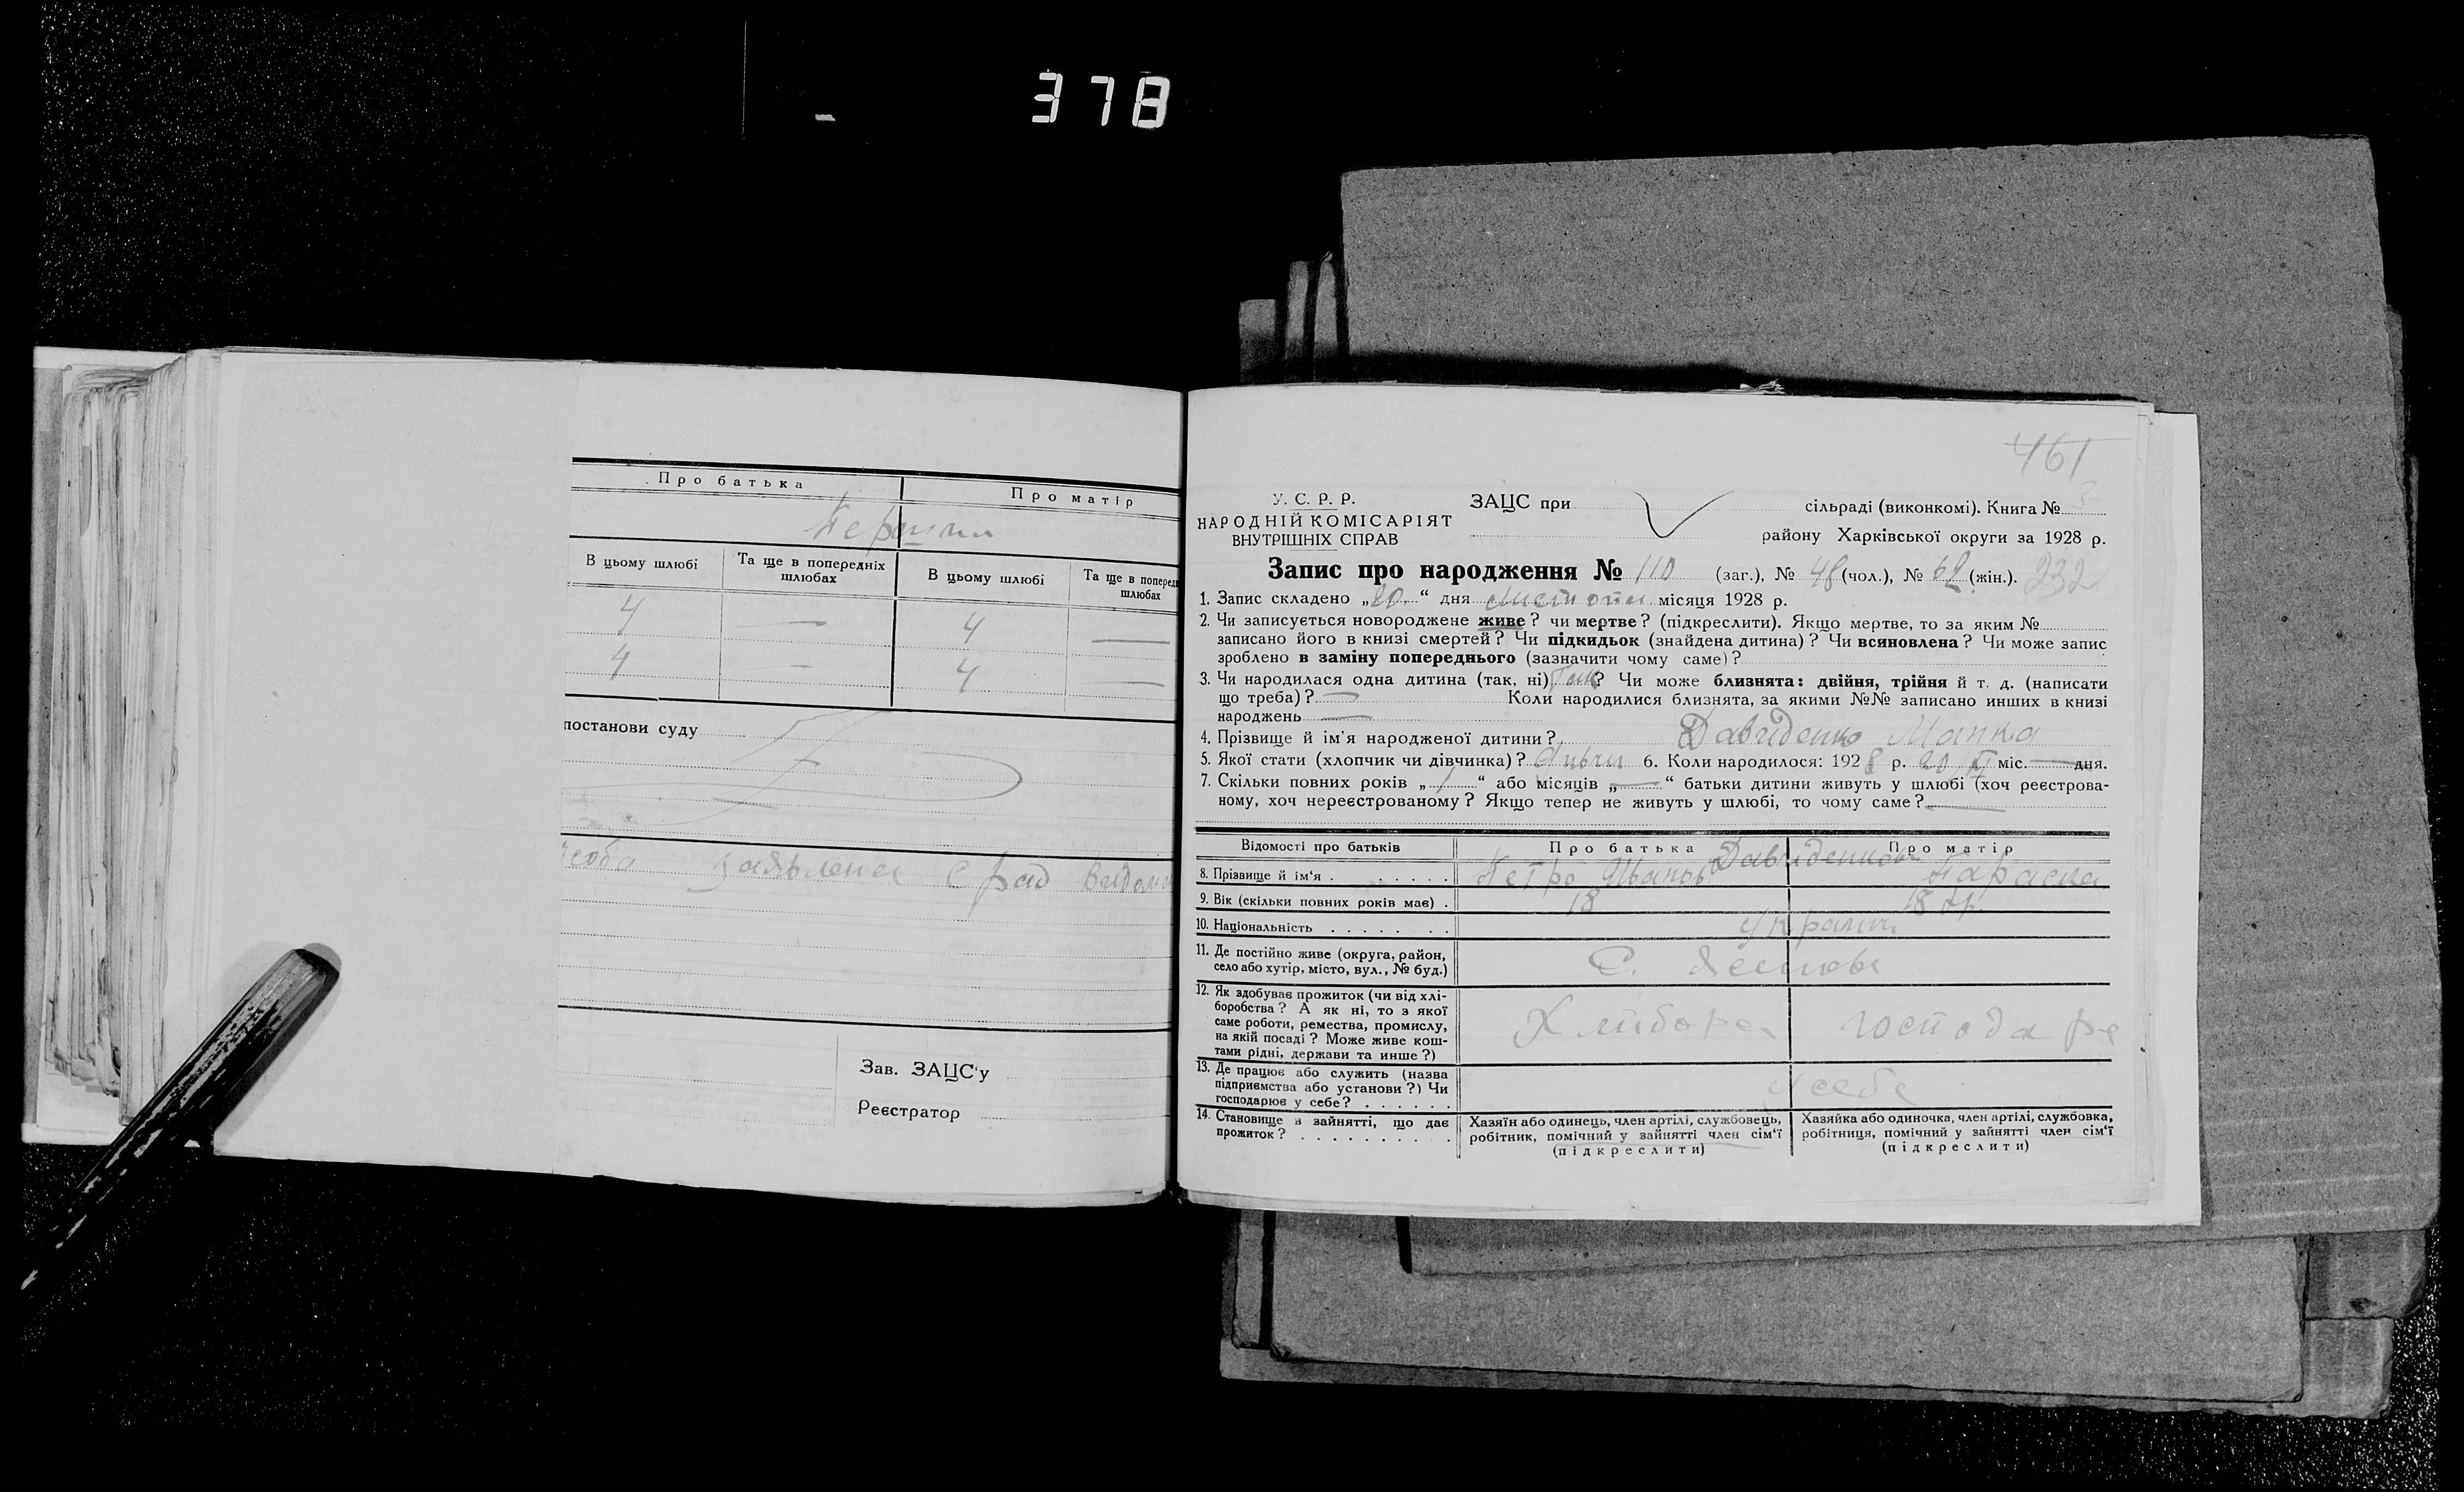 378
Про батька Про матір
В цьому шлюбі Та ще в попередніх шлюбах В цьому шлюбі Та ще в поперед шлюбах
4 — 4 —
4 — 4 —
постанови суду
заявлена
Зав. ЗАЦС'у
Реєстратор
461
У. С. Р. Р.
НАРОДНІЙ КОМІСАРІЯТ
ВНУТРІШНІХ СПРАВ
ЗАЦС при сільраді (виконкомі). Книга № 3
району Харківської округи за 1928 р.
Запис про народження № 110 (заг.), № 48 (чол.), № 62 (жін.). 232
1. Запис складено „20“ дня листопа місяця 1928 р.
2. Чи записується новороджене живе? чи мертве? (підкреслити). Якщо мертве, то за яким №
записано його в книзі смертей? Чи підкидьок (знайдена дитина)? Чи всиновлена? Чи може запис
зроблено в заміну попереднього (зазначити чому саме)?
3. Чи народилася одна дитина (так, ні) Так? Чи може близнята: двійня, трійня й т. д. (написати
що треба)? — Коли народилися близнята, за якими №№ записано инших в книзі
народжень —
4. Прізвище й ім'я народженої дитини? Давиденко
5. Якої стати (хлопчик чи дівчинка)? 6. Коли народилося: 1928 р. 20 XI міс. — дня.
7. Скільки повних років „1“ або місяців „—“ батьки дитини живуть у шлюбі (хоч реєстрова-
ному, хоч нереєстрованому? Якщо тепер не живуть у шлюбі, то чому саме? —
Відомості про батьків Про батька Про матір
Давиденкова
8. Прізвище й ім'я . . . . . . Петро Иванов Параска
9. Вік (скільки повних років має) . 18 18 др.
10. Національність . . . . . . . .
11. Де постійно живе (округа, район,
село або хутір, місто, вул., № буд.) С.
12. Як здобуває прожиток (чи від хлі-
боробства? А як ні, то з якої
саме роботи, ремества, промислу,
на якій посаді? Може живе кош-
тами рідні, держави та инше?)
13. Де працює або служить (назва
підприємства або установи?) Чи
господарює у себе? . . . . . . у себе
14. Становище в зайнятті, що дає
прожиток? . . . . . . . . . .
Хазяїн або одинець, член артілі, службовець,
робітник, помічний у зайнятті член сім'ї
(підкреслити)
Хазяйка або одиночка, член артілі, службовка,
робітниця, помічний у зайнятті член сім'ї
(підкреслити)